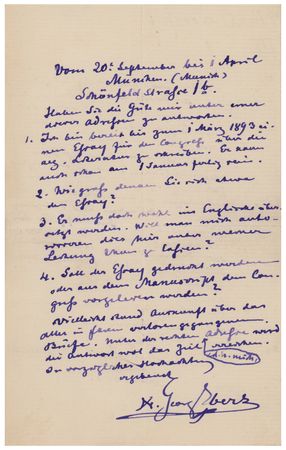 Vom 20t September bis 1 April
München. (Munich)
Schönfeld Strasse 1b.
Haben Sie die Güte mir unter einer
dieser Adressen zu antworten.
1. Ich bin bereit bis zum 1 März 1893 ei-
nen Essay für den Congress über die
aeg. Literatur zu schreiben. Er kann
auch schon am 1 Januar fertig sein.
2. Wie gross denken Sie sich etwa
den Essay?
3. Er muss doch wohl ins Englische über-
setzt werden. Will man mich auto-
risieren dies hier unter meiner
Leitung thun zu lassen?
4. Soll der Essay gedruckt werden
oder aus dem Manuscript dem Con-
gress vorgelesen werden?
Vielleicht stand Auskunft über das
alles in Ihrem verloren gegangenen
Briefe. Unter der rechten Adresse wird
die Antwort wol das Ziel erreichen.
In vorzüglicher Hochachtung
ergebenst
Dr. Georg Ebers